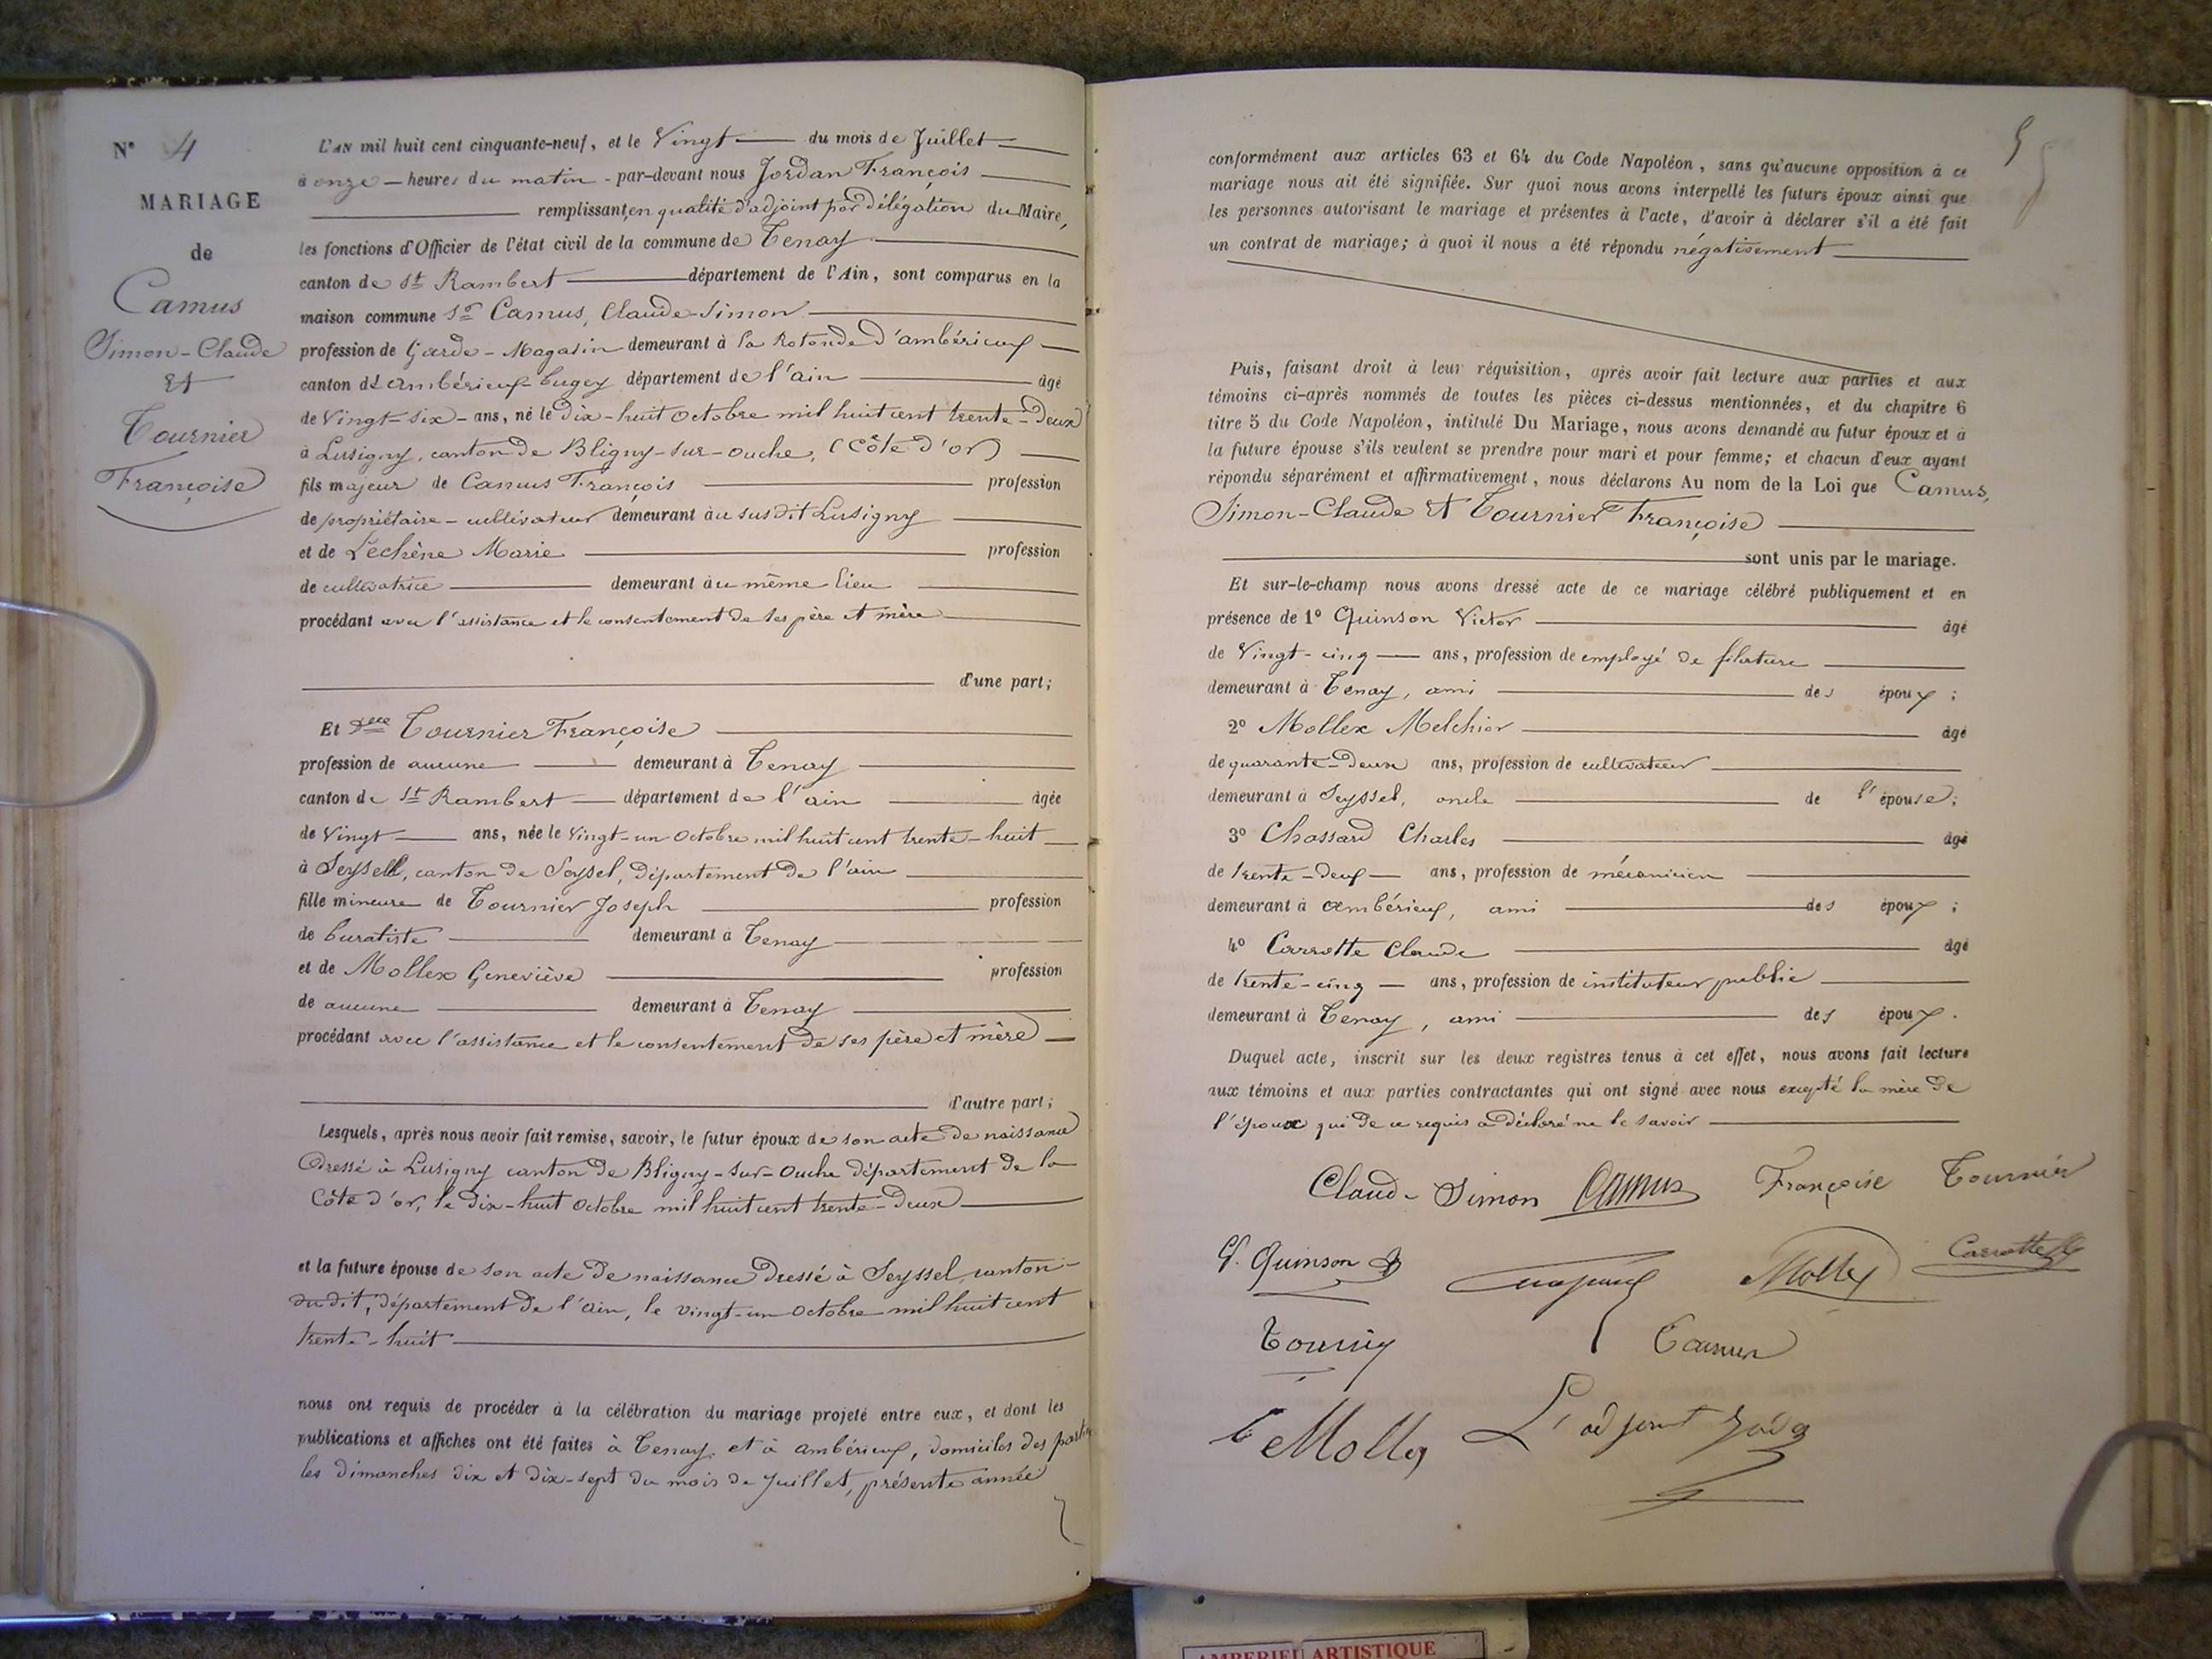 N° 4
MARIAGE
de
Camus
Simon-Claude
Et
Tournier
Françoise
L'AN mil huit cent cinquante-neuf, et le Vingt du mois de Juillet
à onze heures du matin par-devant nous Jordan François
remplissant, en qualité d'adjoint par délégation du Maire,
les fonctions d'Officier de l'état civil de la commune de Tenay
canton de St Rambert département de l'Ain, sont comparus en la
maison commune Sr Camus, Claude-Simon
profession de Garde-Magasin demeurant à la Rotonde d'ambérieuf
canton d'ambérieuf-bugey département de l'ain âgé
de Vingt-six ans, né le dix-huit octobre mil huit cent trente-deux
à Lusigny, canton de Bligny-sur-ouche, (Côte d'or)
fils majeur de Camus François profession
de propriétaire-cultivateur demeurant au susdit Lusigny
et de Lechène Marie profession
de cultivatrice demeurant au même lieu
procédant avec l'assistance et le consentement de ses père et mère
d'une part;
Et Delle Tournier Françoise
profession de aucune demeurant à Tenay
canton de St Rambert département de l'ain âgée
de Vingt ans, née le Vingt-un octobre mil huit cent trente-huit
à Seyssel, canton de Seyssel, département de l'ain
fille mineure de Tournier Joseph profession
de buraliste demeurant à Tenay
et de Mollex Geneviève profession
de aucune demeurant à Tenay
procédant avec l'assistance et le consentement de ses père et mère
d'autre part;
Lesquels, après nous avoir fait remise, savoir, le futur époux de son acte de naissance
dressé à Lusigny canton de Bligny-sur-Ouche département de la
Côte d'or, le dix-huit octobre mil huit cent trente-deux
et la future épouse de son acte de naissance dressé à Seyssel, canton
du dit, département de l'ain, le vingt-un octobre mil huit cent
trente-huit
nous ont requis de procéder à la célébration du mariage projeté entre eux, et dont les
publications et affiches ont été faites à Tenay et à ambérieuf, domiciles des parties
les dimanches dix et dix-sept du mois de Juillet, présente année
conformément aux articles 63 et 64 du Code Napoléon, sans qu'aucune opposition à ce
mariage nous ait été signifiée. Sur quoi nous avons interpellé les futurs époux ainsi que
les personnes autorisant le mariage et présentes à l'acte, d'avoir à déclarer s'il a été fait
un contrat de mariage; à quoi il nous a été répondu négativement
Puis, faisant droit à leur réquisition, après avoir fait lecture aux parties et aux
témoins ci-après nommés de toutes les pièces ci-dessus mentionnées, et du chapitre 6
titre 5 du Code Napoléon, intitulé Du Mariage, nous avons demandé au futur époux et à
la future épouse s'ils veulent se prendre pour mari et pour femme; et chacun d'eux ayant
répondu séparément et affirmativement, nous déclarons Au nom de la Loi que Camus,
Simon-Claude Et Tournier Françoise
sont unis par le mariage.
Et sur-le-champ nous avons dressé acte de ce mariage célébré publiquement et en
présence de 1° Quinson Victor âgé
de Vingt-cinq ans, profession de employé de filature
demeurant à Tenay, ami des époux;
2° Mollex Melchior âgé
de quarante-deux ans, profession de cultivateur
demeurant à Seyssel, oncle de l'épouse;
3° Chassard Charles âgé
de trente-neuf ans, profession de mécanicien
demeurant à ambérieuf, ami des époux;
4° Carrotte Claude âgé
de trente-cinq ans, profession de instituteur public
demeurant à Tenay, ami des époux.
Duquel acte, inscrit sur les deux registres tenus à cet effet, nous avons fait lecture
aux témoins et aux parties contractantes qui ont signé avec nous excepté la mère de
l'époux qui de ce requis a déclaré ne le savoir
Claude Simon Camus Françoise Tournier
V. Quinson Mollex Carrotte
Camus
Mollex L'adjoint
AMBERIEU ARTISTIQUE